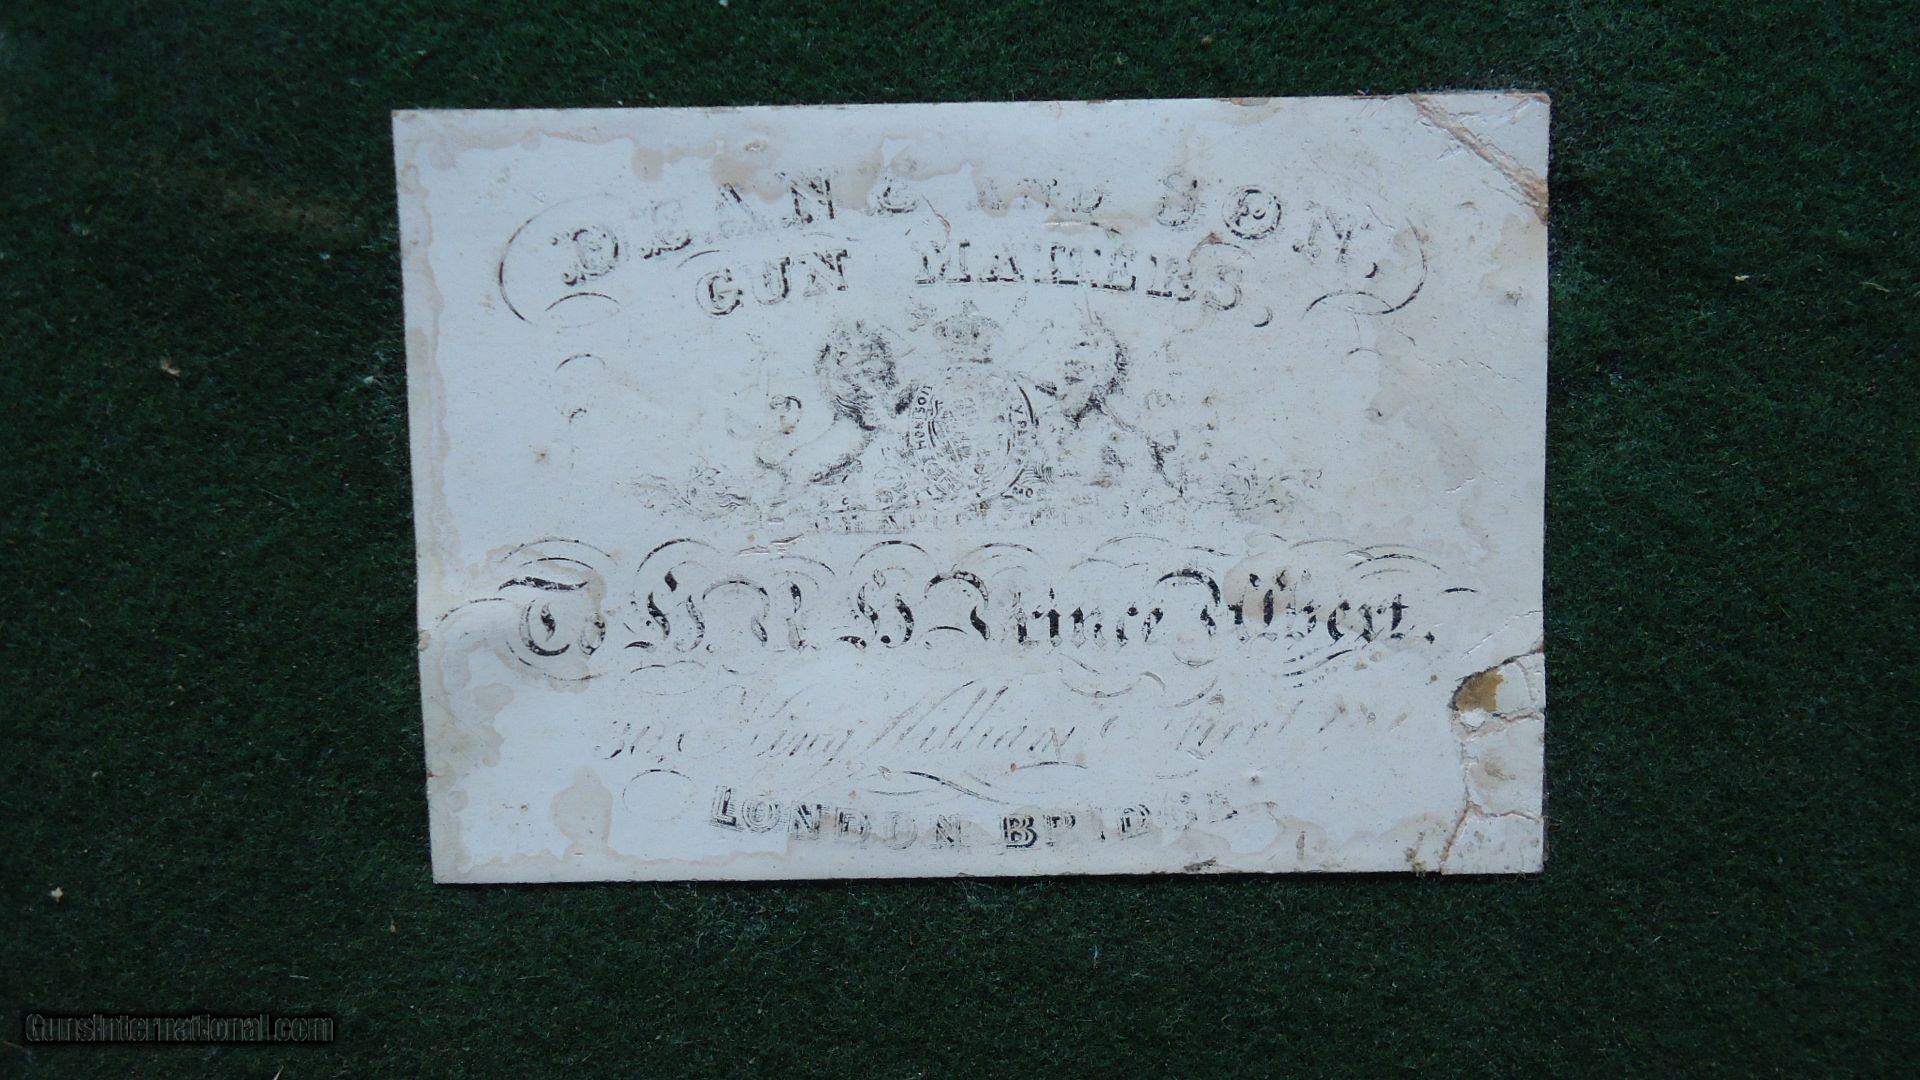 DEANE AND SON,
GUN MAKERS,
HONI SOIT
To H.R.H. Prince Albert.
King William Street
LONDON BRIDGE
GunsInternational.com